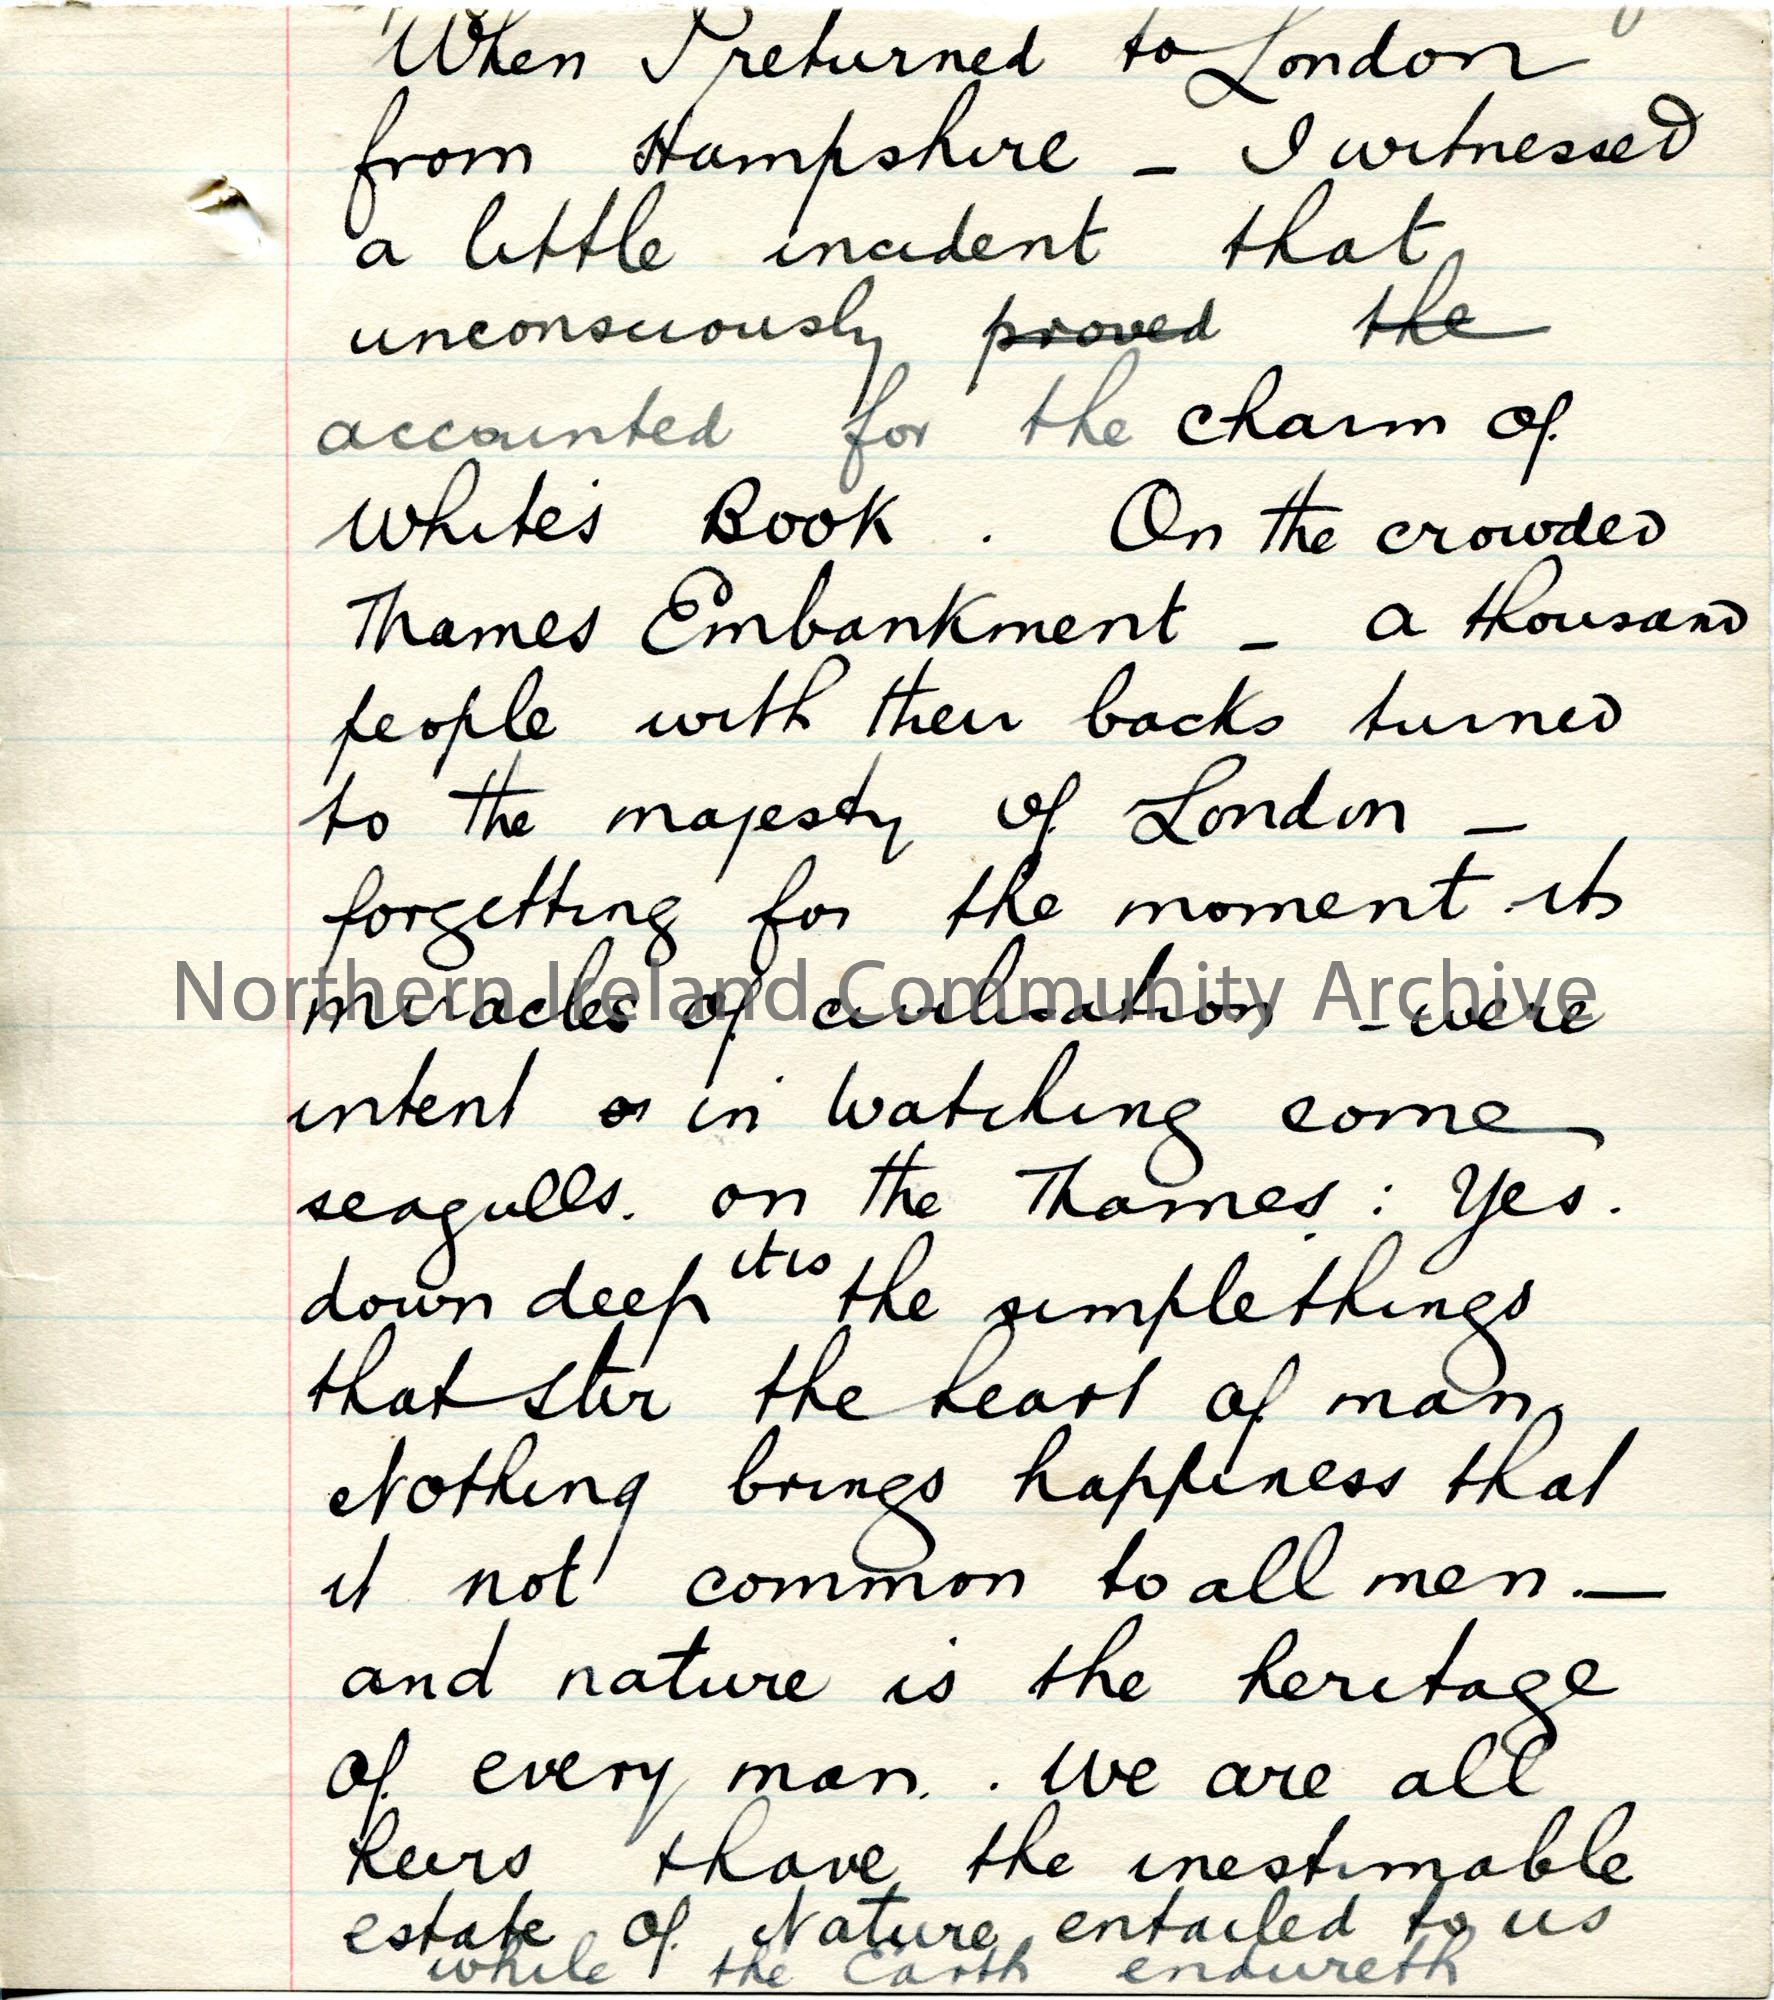 When I returned to London
from Hampshire – I witnessed
a little incident that
unconsciously proved the
accounted for the charm of
White's Book . On the crowded
Thames Embankment – a thousand
people with their backs turned
to the majesty of London –
forgetting for the moment its
Northern Ireland Community Archive
miracles of civilisation – were
intent on in watching some
seagulls. on the Thames : Yes.
down deep it is the simple things
that stir the heart of man.
Nothing brings happiness that
it not common to all men. –
and nature is the heritage
of every man. . We are all
heirs + have the inestimable
estate of Nature entailed to us
while the Earth endureth